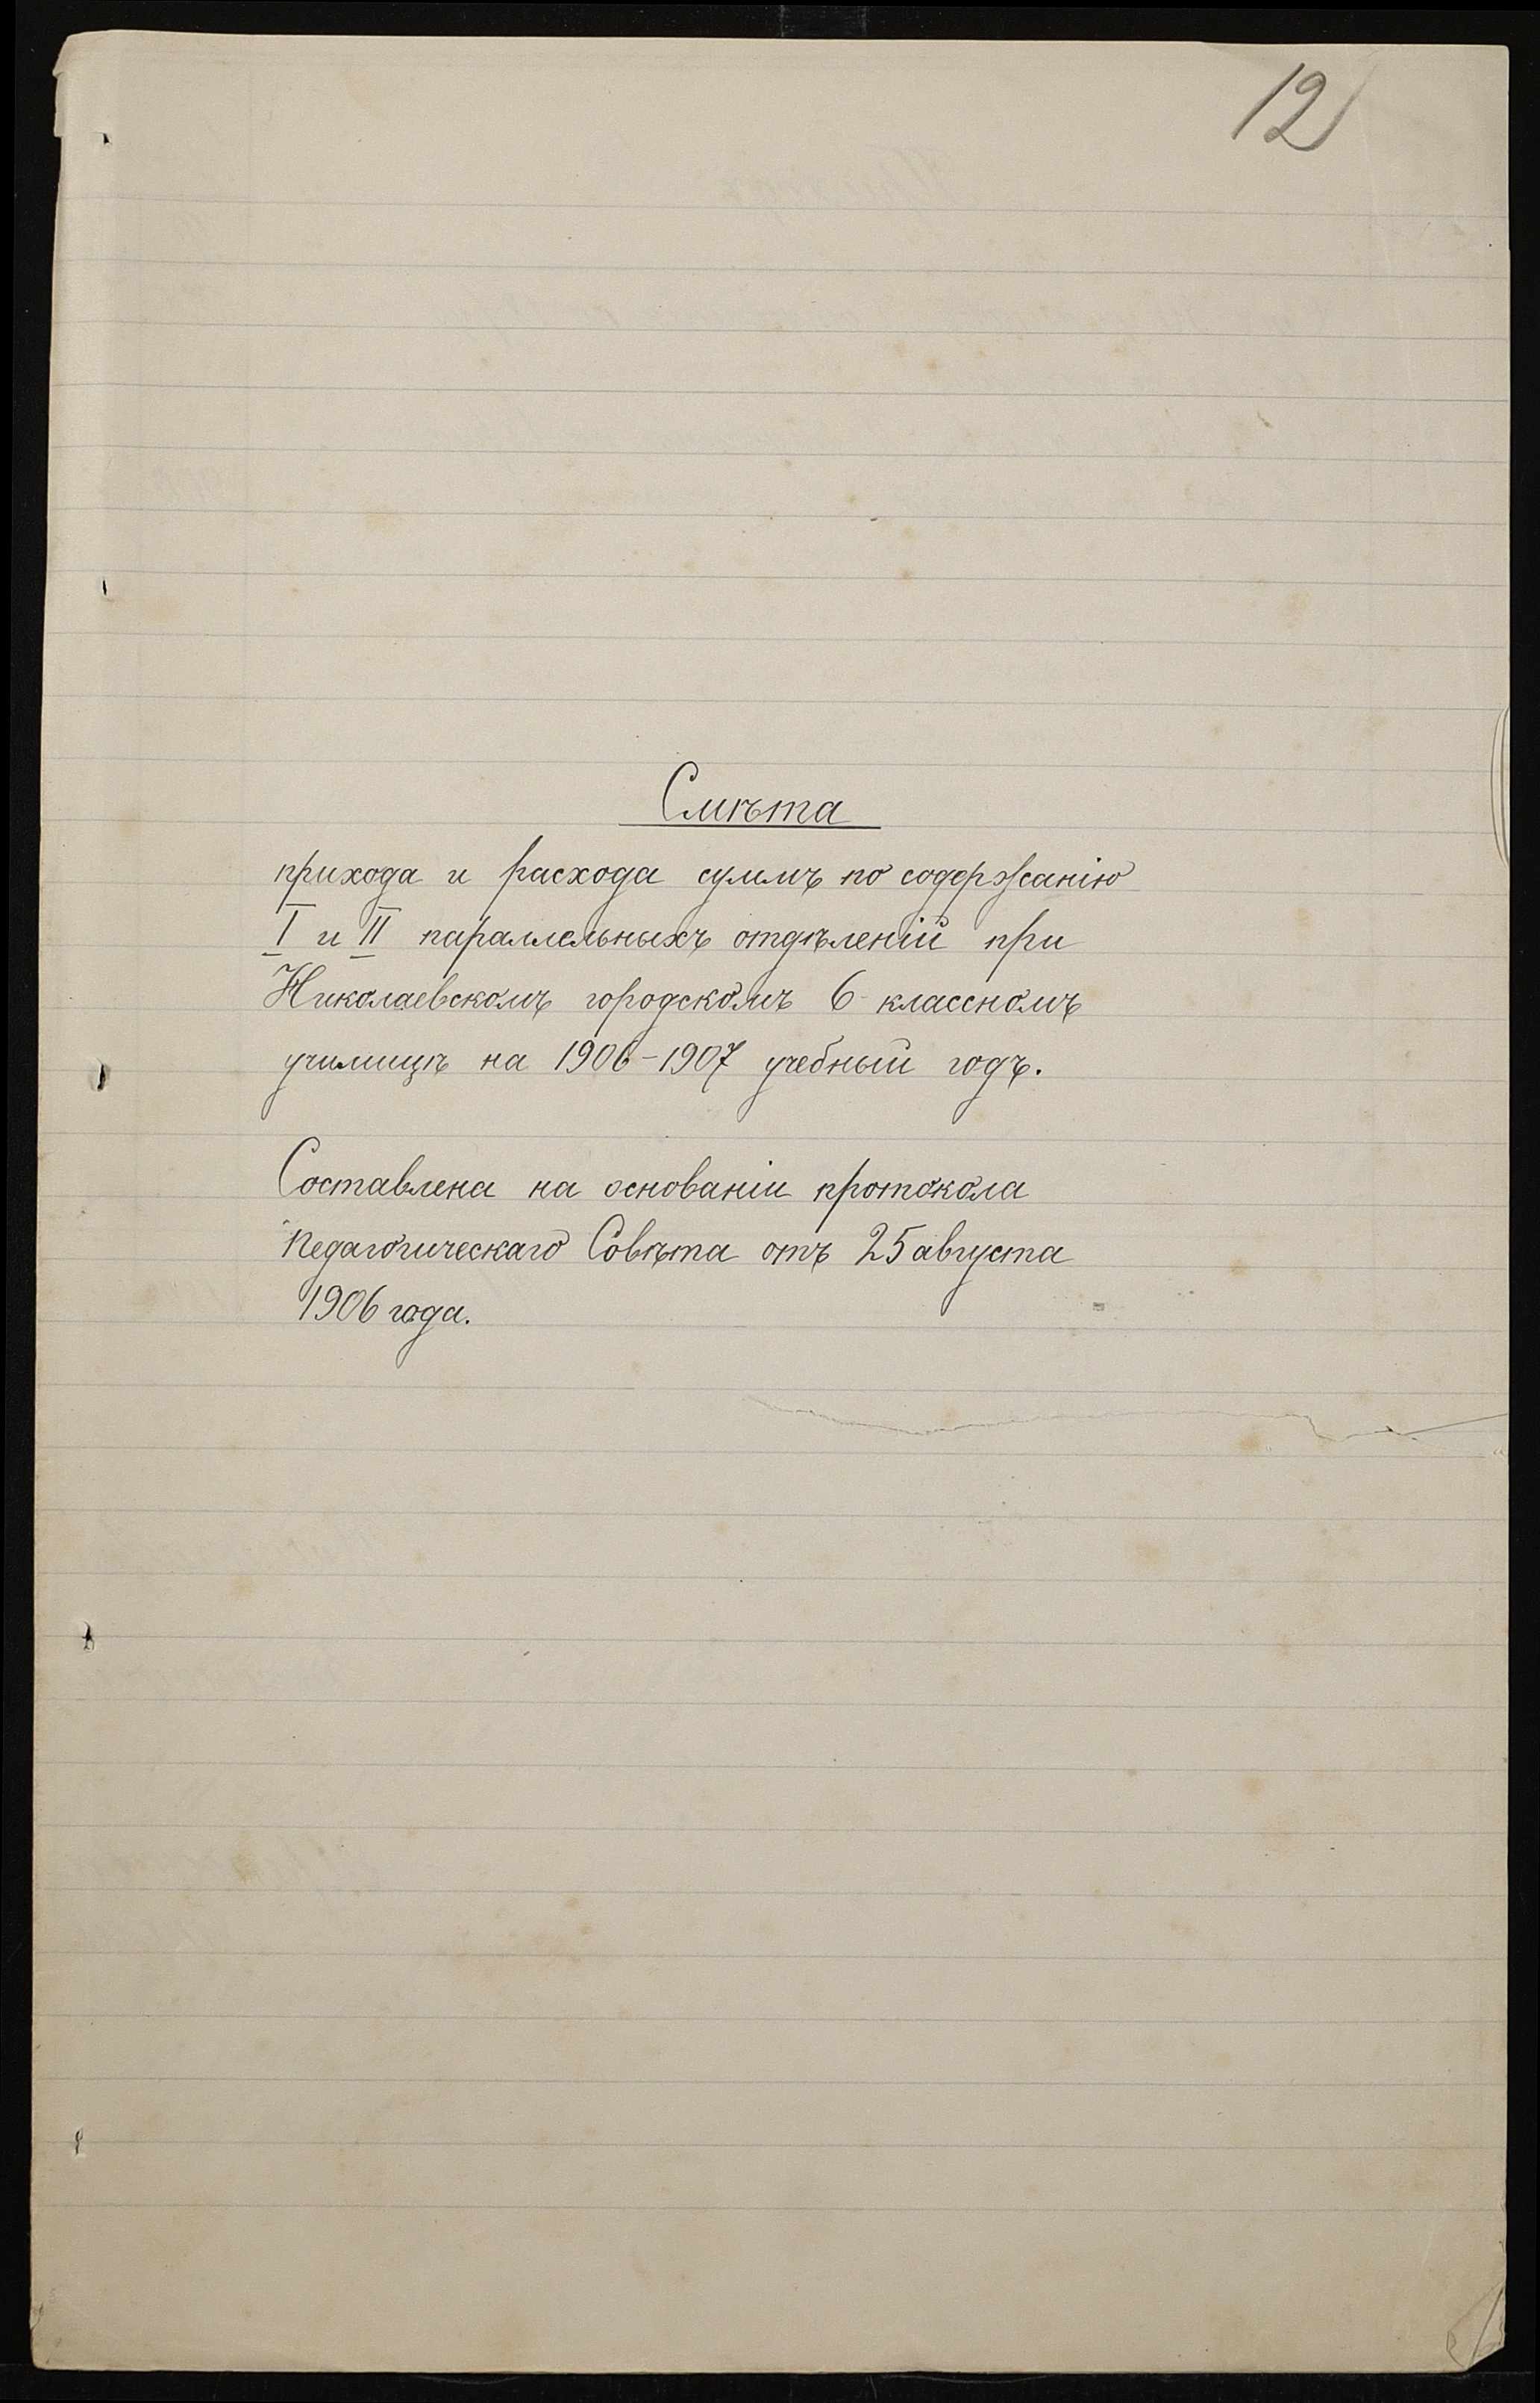 12
Смѣта
прихода и расхода суммъ по содержанію
I и II параллельныхъ отдѣленій при
Николаевскомъ городскомъ 6-классномъ
училищѣ на 1906-1907 учебный годъ.
Составлена на основаніи протокола
Педагогическаго Совѣта отъ 25 августа
1906 года.